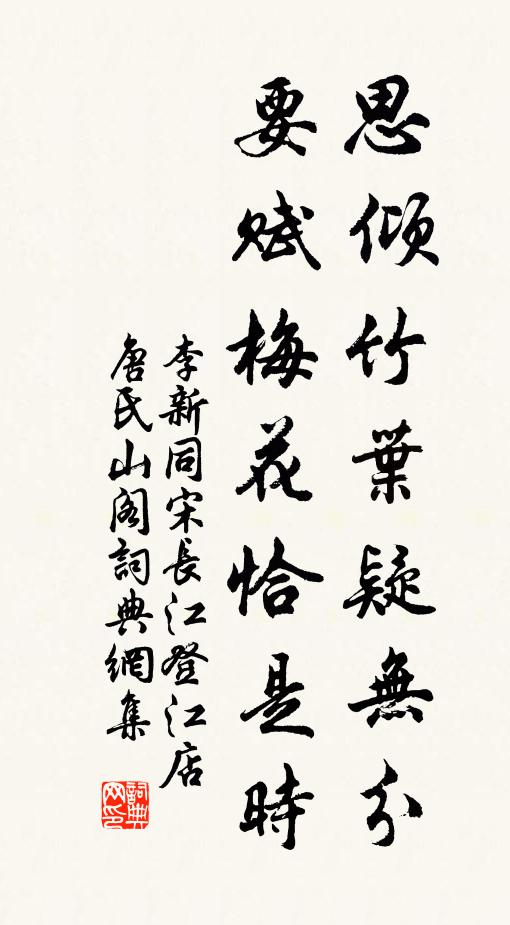 思傾竹葉疑無分
要賦梅花恰是時
李新同宋長江登江店
唐氏山閣詞典網集
詞典网印